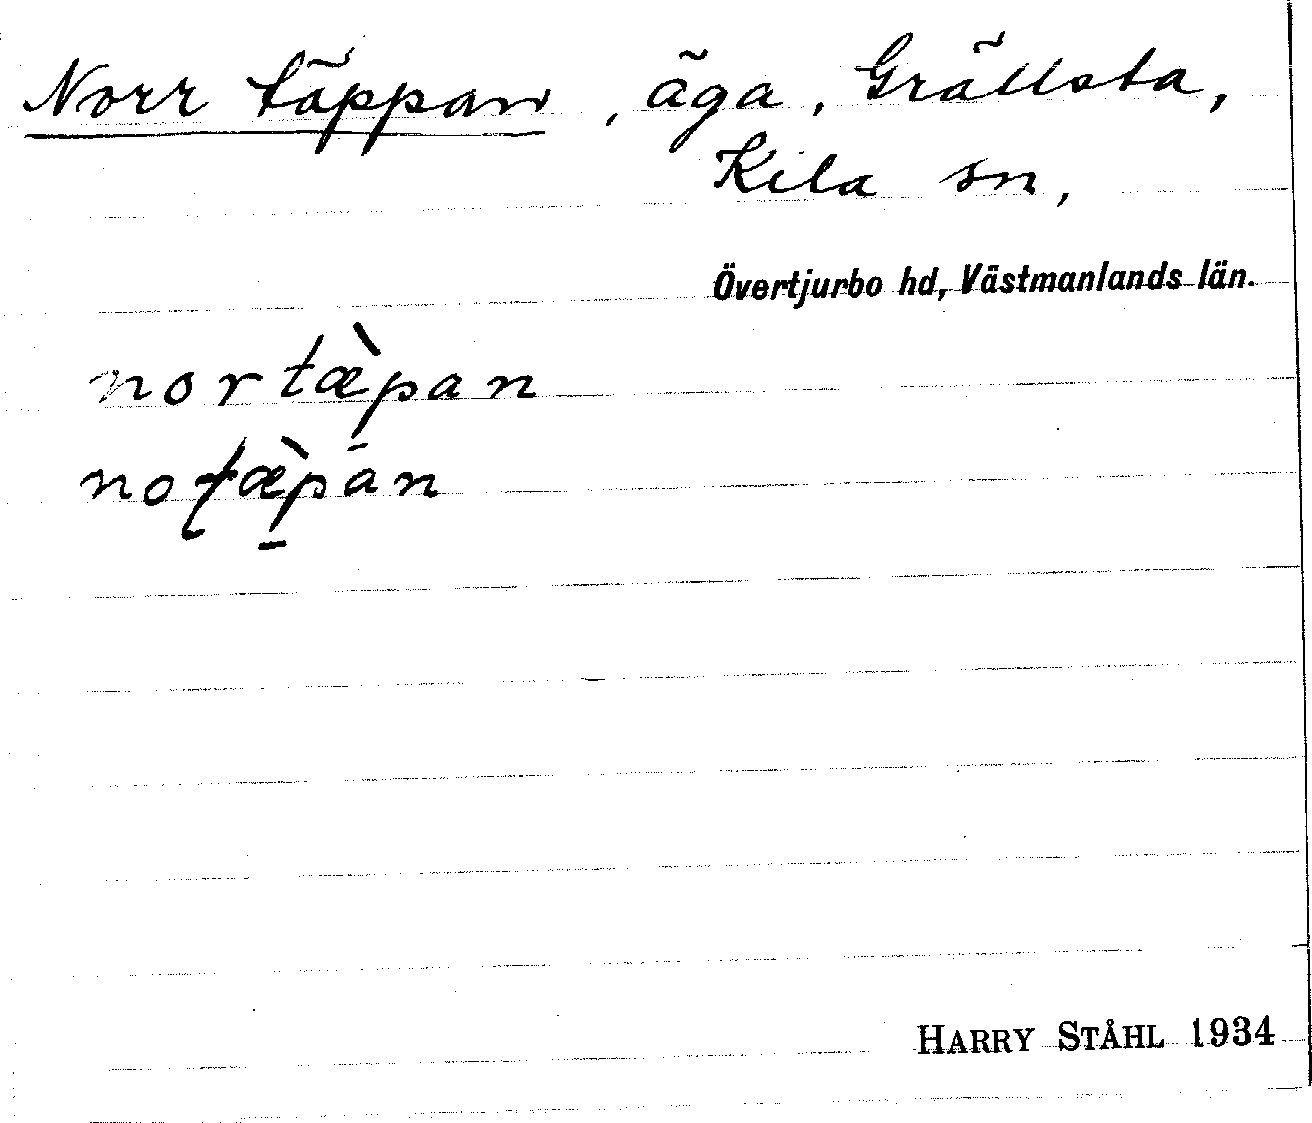 Norr täppan, äga, Grällsta,
Kila sn,
Övertjurbo hd, Västmanlands län.
nortæ̀pan
noʈæ̀pan
HARRY STÅHL 1934